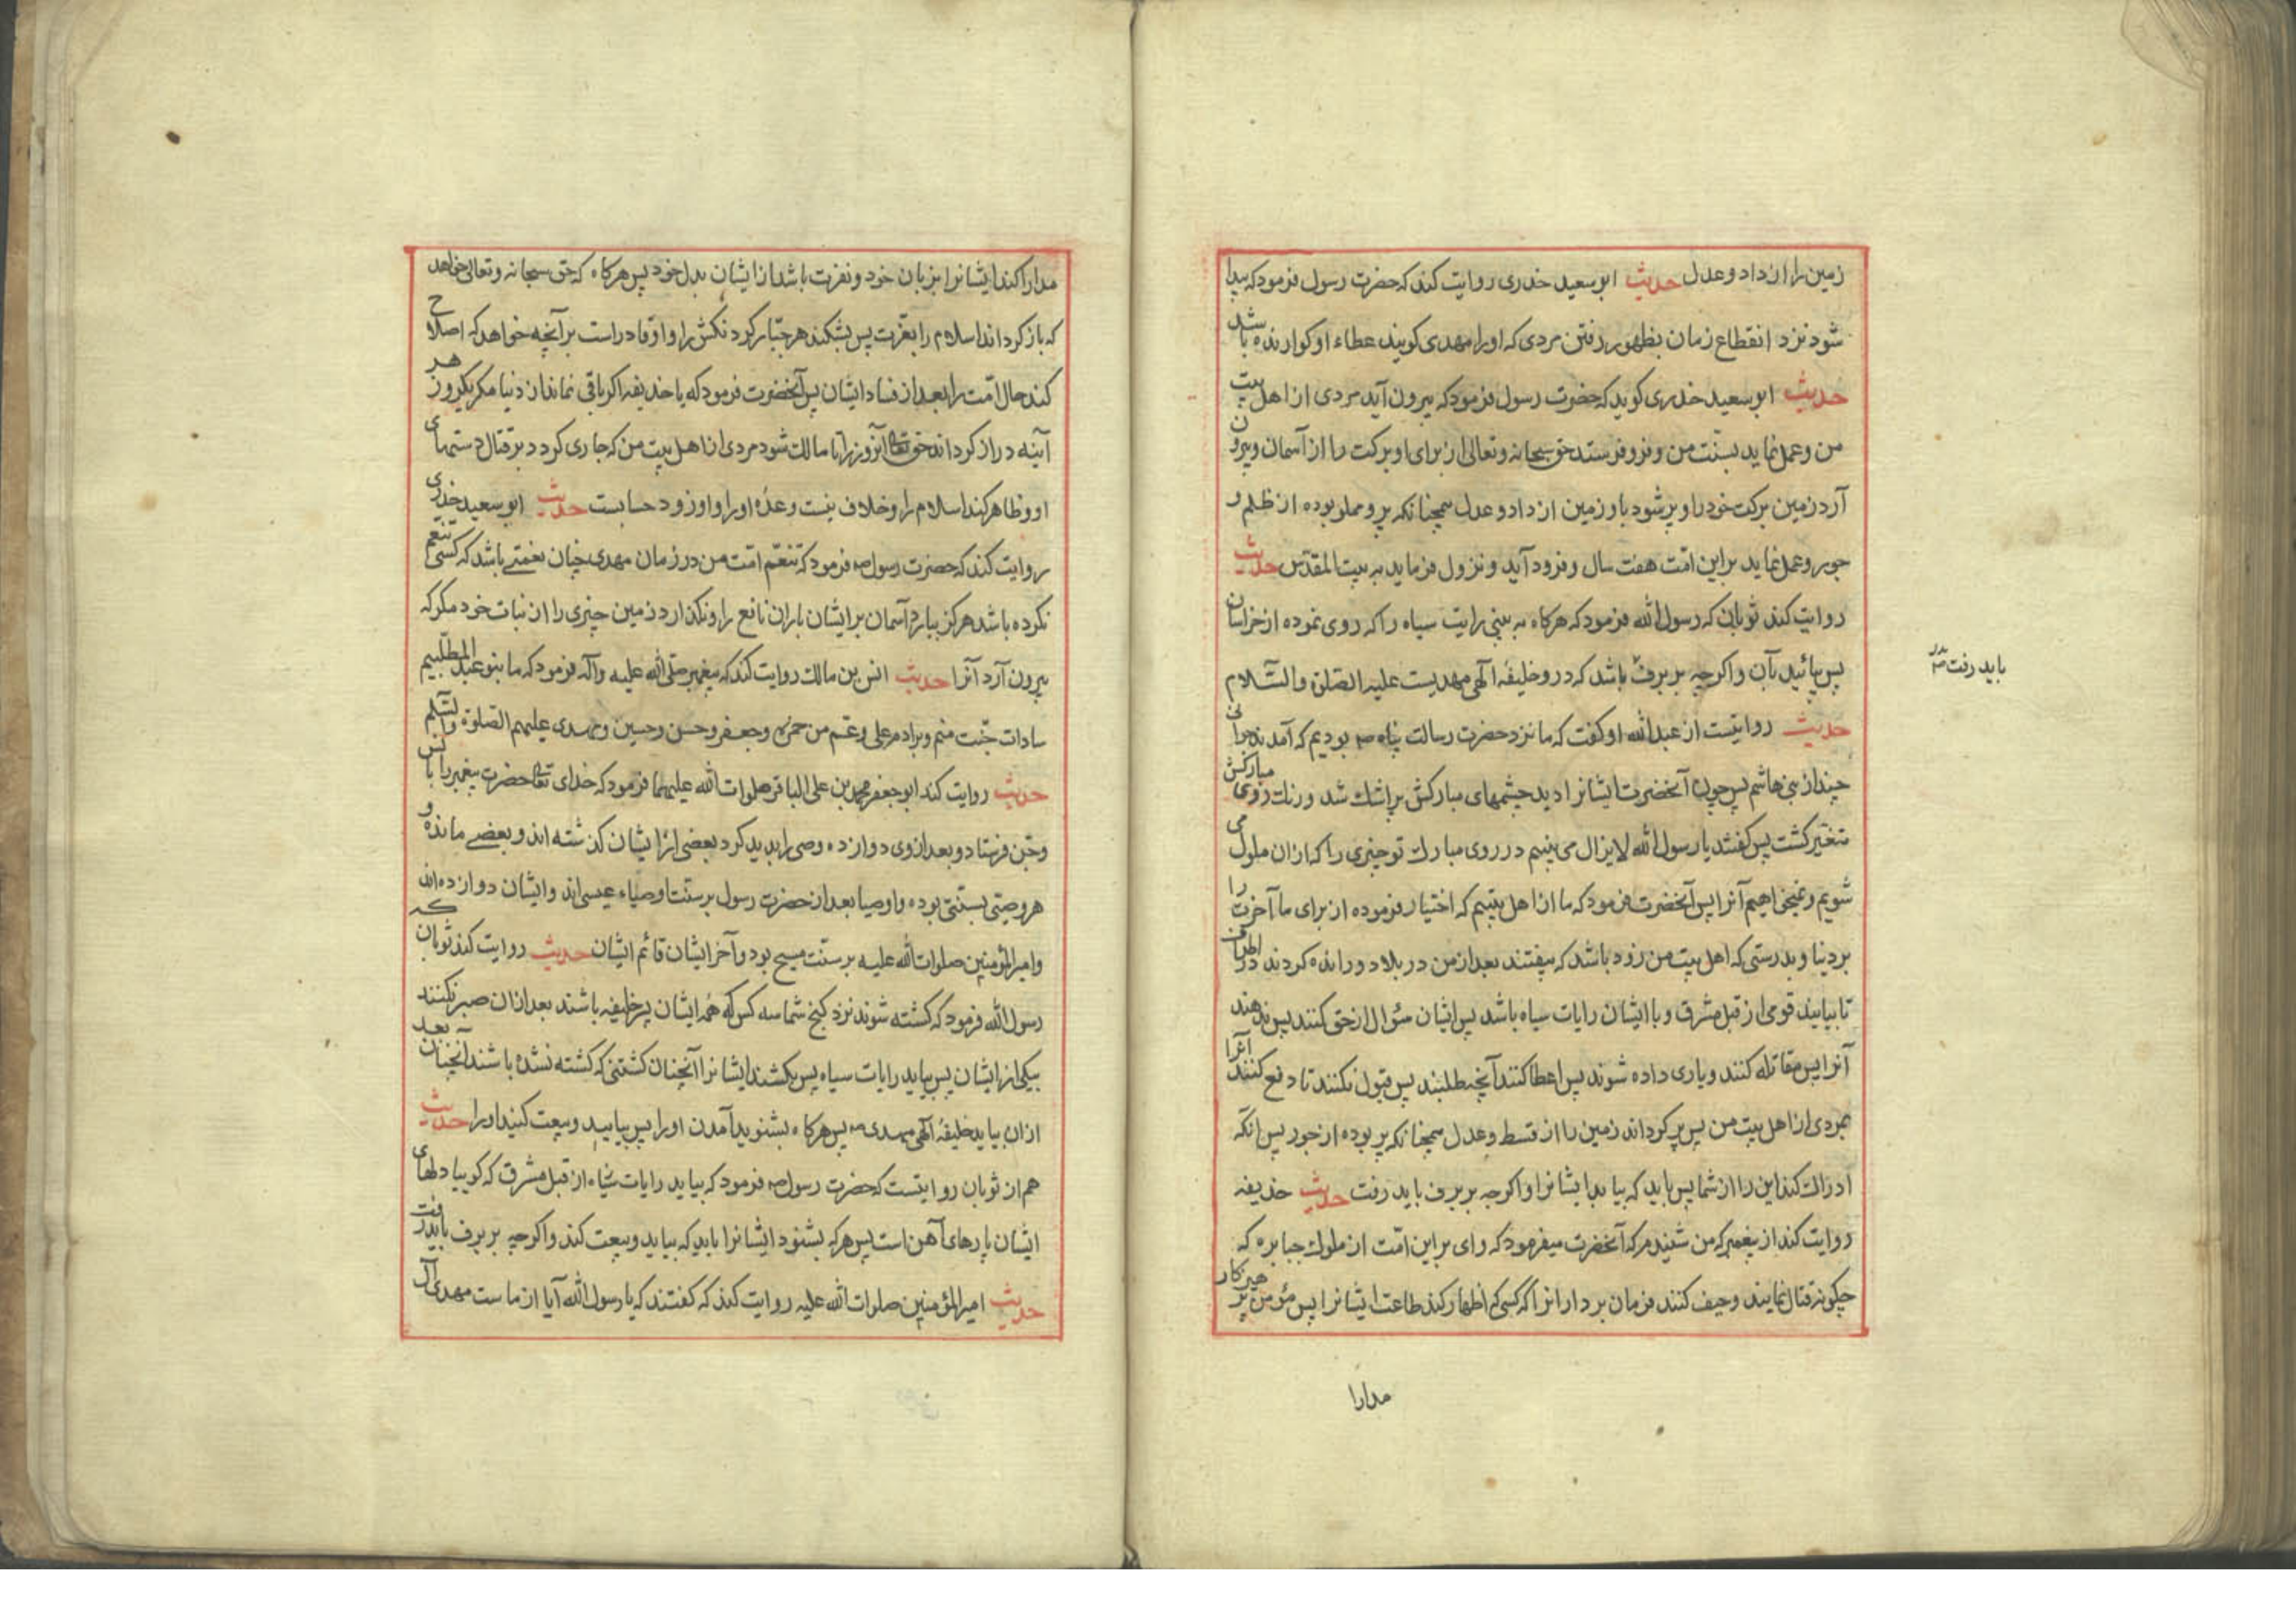 زمین را از داد و عدل حدیث ابو سعید خدری روایت کند که حضرت رسول فرمود که پیدا
شود نزد انقطاع زمان بظهور رفتن مردی که اورا مهدی کویند عطاء او کوارنده باشد
حدیث ابو سعید خدری کوید که حضرت رسول فرمود که بیرون آید مردی از اهل بیت
من و عمل نماید بسنّت من و فرو فرستد حق سبحانه و تعالی از برای او برکت را از آسمان و بیرون
آرد زمین برکت خود را و پر شود باو زمین از داد و عدل همچنانکه پر و مملو بوده از ظلم و
جور و عمل نماید بر این امّت هفت سال و فرود آید و نزول فرماید به بیت المقدّس حدیث
روایت کند ثوبان که رسول الله فرمود که هرکاه به بینی رایت سیاه را که روی نموده از خراسان
پس بیائید بآن و اکرچه بر برف باشد که در و خلیفهٔ آلهی مهدیست علیه الصّلوة والسّلام
باید رفت
حدیث روایتست از عبدالله او کفت که ما نزد حضرت رسالت پناه ص بودیم که آمدند جوانی
چند از بنی هاشم پس چون آنحضرت ایشانرا دید چشمهای مبارکش پر اشک شد و رنک روی مبارکش
متغیّر کشت پس کفتند یا رسول الله لایزال می بینیم در روی مبارک تو چیزی را که ازان ملول می
شویم و نمیخواهیم آنرا پس آنحضرت فرمود که ما از اهل بیتیم که اختیار فرموده از برای ما آخرت را
بر دنیا و بدرستی که اهل بیت من زود باشد که بیفتند بعد از من در بلاد و رانده کردند در اطراف
تا بیایند قومی از قبل مشرق و با ایشان رایات سیاه باشد پس ایشان سؤال از حق کنند پس ندهند
آنرا پس مقاتله کنند و یاری داده شوند پس اعطا کنند آنچه طلبند پس قبول نکنند تا دفع کنند آنرا
بمردی از اهل بیت من پس پر کرداند زمین را از قسط و عدل همچنانکه پر بوده از جور پس آنکه
ادراک کند این را از شما پس باید که بیاید ایشانرا و اکرچه بر برف باید رفت حدیث حذیفه
روایت کند از پیغمبر که من شنیدم که آنحضرت میفرمود که وای بر این امّت از ملوک جبابره که
چکونه قتال نمایند و حیف کنند فرمان بردارانرا مکر کسی که اظهار کند طاعت ایشانرا پس مؤمن پرهیزکار
مدارا
مدارا کند ایشانرا بزبان خود و نفرت باشد از ایشان بدل خود پس هرکاه که حق سبحانه و تعالی خواهد
که باز کرداند اسلام را بعزّت پس بشکند هر جبّار کردنکش را و او قادر است بر آنچه خواهد که اصلاح
کند حال امّت را بعد از فساد ایشان پس آنحضرت فرمود که یا حذیفه اکر باقی نماند از دنیا مکر یکروز هر
آینه دراز کرداند حق تعالی آنروز را تا مالک شود مردی از اهل بیت من که جاری کردد بر قتال دستهای
او و ظاهر کند اسلام را و خلاف نیست وعدهٔ اورا و او زود حسابست حدیث ابو سعید خدری
روایت کند که حضرت رسول ص فرمود که تنعّم امّت من در زمان مهدی چنان نعمتی باشد که کسی تنعّم
نکرده باشد هرکز ببارد آسمان بر ایشان باران نافع را و نکذارد زمین چیزی را از نبات خود مکر که
بیرون آرد آنرا حدیث انس بن مالک روایت کند که پیغمبر صلی الله علیه وآله فرمود که ما بنو عبد المطّلبیم
سادات جنّت منم و برادرم علی و عمّ من حمزه و جعفر و حسن و حسین و مهدی علیهم الصلوة والسّلم
حدیث روایت کند ابو جعفر محمد بن علی الباقر صلوات الله علیهما فرمود که خدای تعالی حضرت پیغمبر را با انس
و جن فرستاد و بعد از وی دوازده وصی را پدید کرد بعضی از ایشان کذشته اند و بعضی مانده و
هر وصیّی بسنّتی بوده و اوصیا بعد از حضرت رسول بر سنّت اوصیاء عیسی اند و ایشان دوازده اند
و امیر المؤمنین صلوات الله علیه بر سنّت مسیح بود و آخر ایشان قائم ایشان حدیث روایت کند ثوبان که
رسول الله فرمود که کشته شوند نزد کنج شما سه کس که همه ایشان پسر خلیفه باشند بعد ازان صبر نکنند
بیکی از ایشان پس بیاید رایات سیاه پس بکشند ایشانرا آنچنان کشتنی که کشته نشده باشند آنچنان بعد
ازان بیاید خلیفهٔ آلهی مهدی ص پس هرکاه بشنوید آمدن اورا پس بیایید و بیعت کنید اورا حدیث
هم از ثوبان روایتست که حضرت رسول ص فرمود که بیاید رایات سیاه از قبل مشرق که کوییا دلهای
ایشان پارهای آهن است پس هرکه بشنود ایشانرا باید که بیاید و بیعت کند و اکرچه بر برف باید رفت
حدیث امیر المؤمنین صلوات الله علیه روایت کند که کفتند که یا رسول الله آیا از ماست مهدی آل